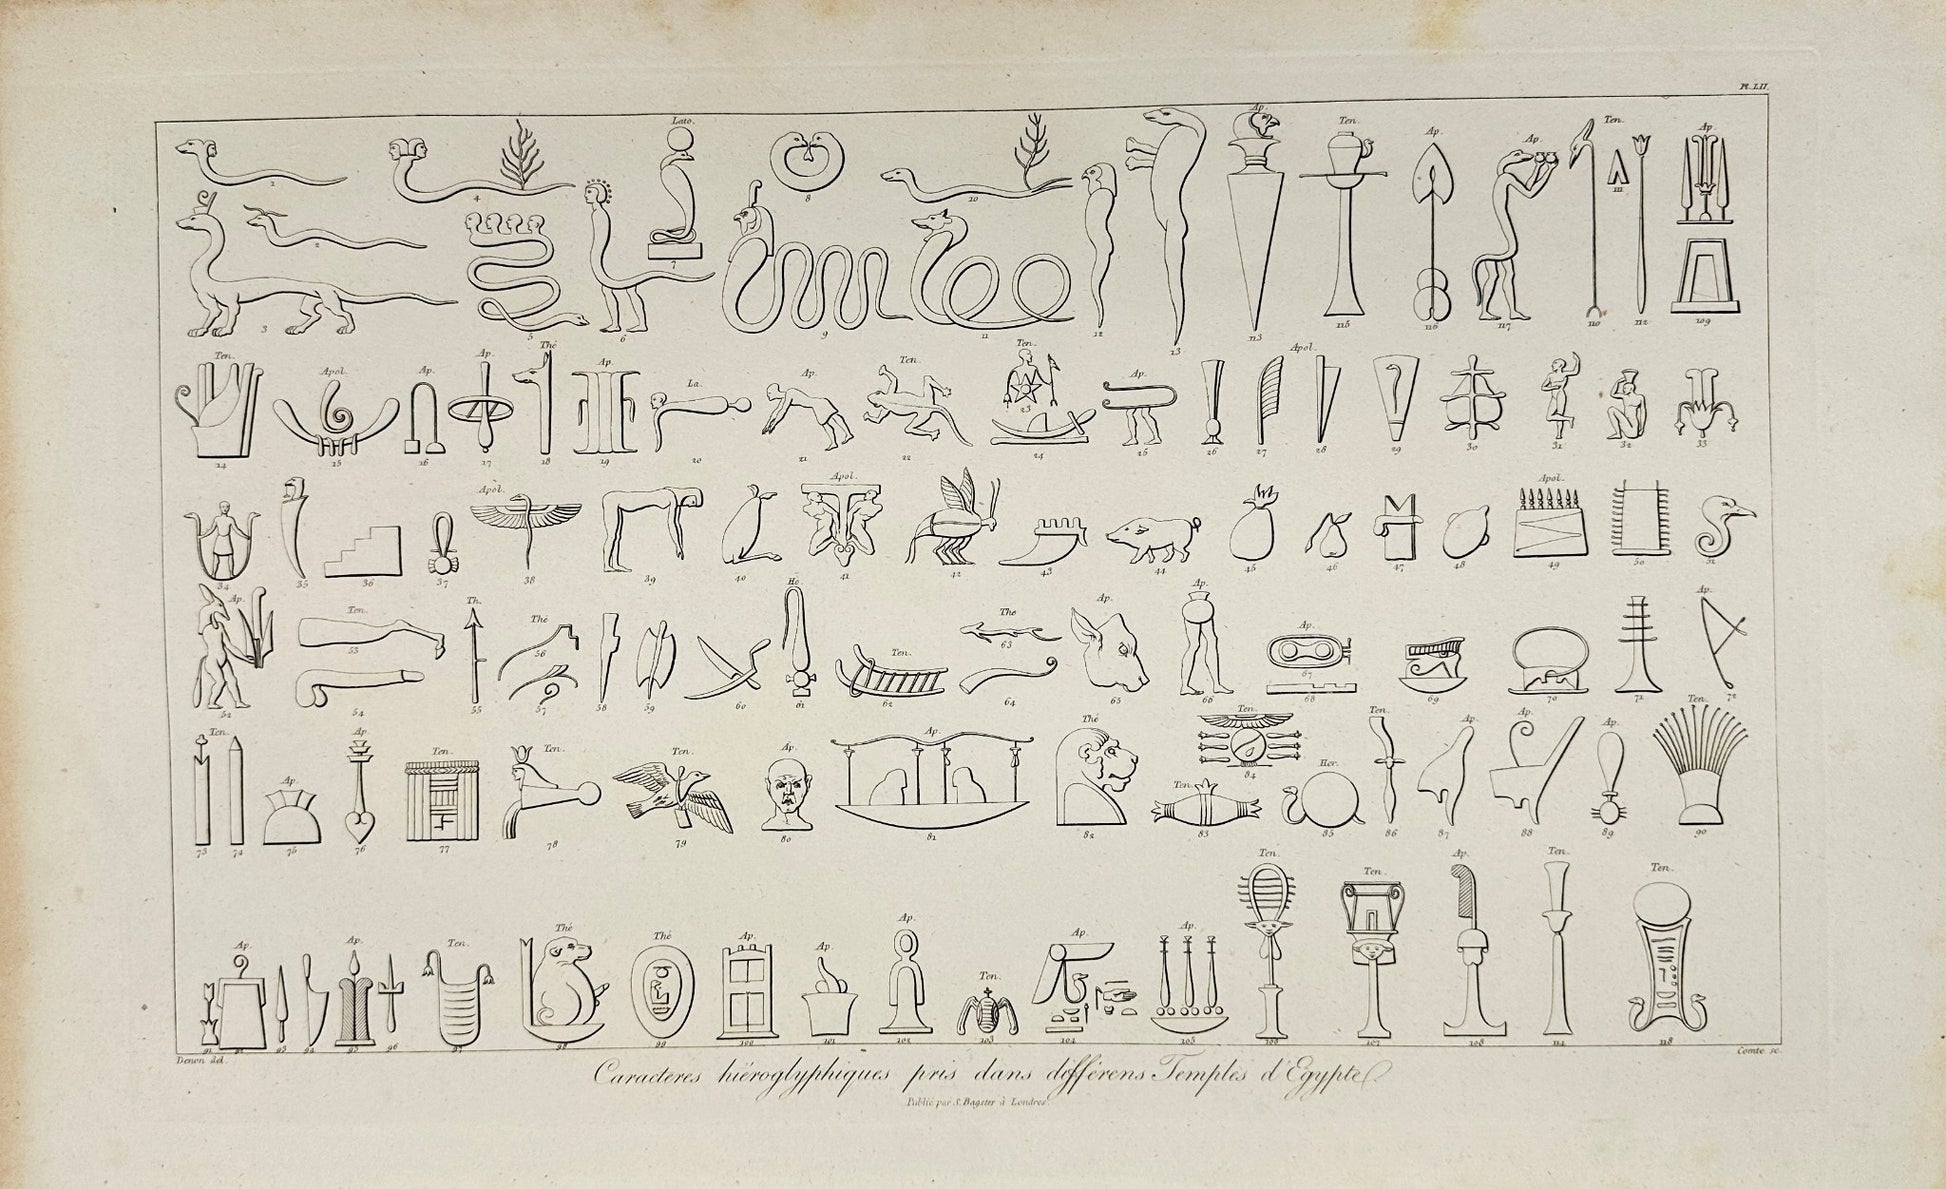 Pl. LII.
Lato. Ap. Ten. Ap. Ap. Ten. Ap.
1 4 8 10 111
2 7
3 5 6 9 11 12 13 113 115 116 117 110 112 109
Ten. Apol. Ap. Ap. Thé Ap. La. Ap. Ten. Ten. Ap. Apol.
23
14 15 16 17 18 19 20 21 22 24 25 26 27 28 29 30 31 32 33
Apol. Apol. Apol.
34 35 36 37 38 39 40 41 42 43 44 45 46 47 48 49 50 51
Ap. Ten. Th. Thé He. Ten. Thé Ap. Ap. Ap. Ap.
53 56 63 67
52 54 55 57 58 59 60 61 62 64 65 66 68 69 70 71 72
Ten. Ap. Ap. Ten. Ten. Ten. Ap. Ap. Thé Ten. Ten. Her. Ten. Ap. Ap. Ap. Ten.
84
73 74 75 76 77 78 79 80 81 82 83 85 86 87 88 89 90
Ap. Ap. Ten. Thé Thé Ap. Ap. Ap. Ten. Ap. Ap. Ten. Ten. Ap. Ten. Ten.
91 92 93 94 95 96 97 98 99 100 101 102 103 104 105 106 107 108 114 118
Denon del. Comte sc.
Caracteres hiéroglyphiques pris dans différens Temples d'Egypte.
Publié par S. Bagster à Londres.